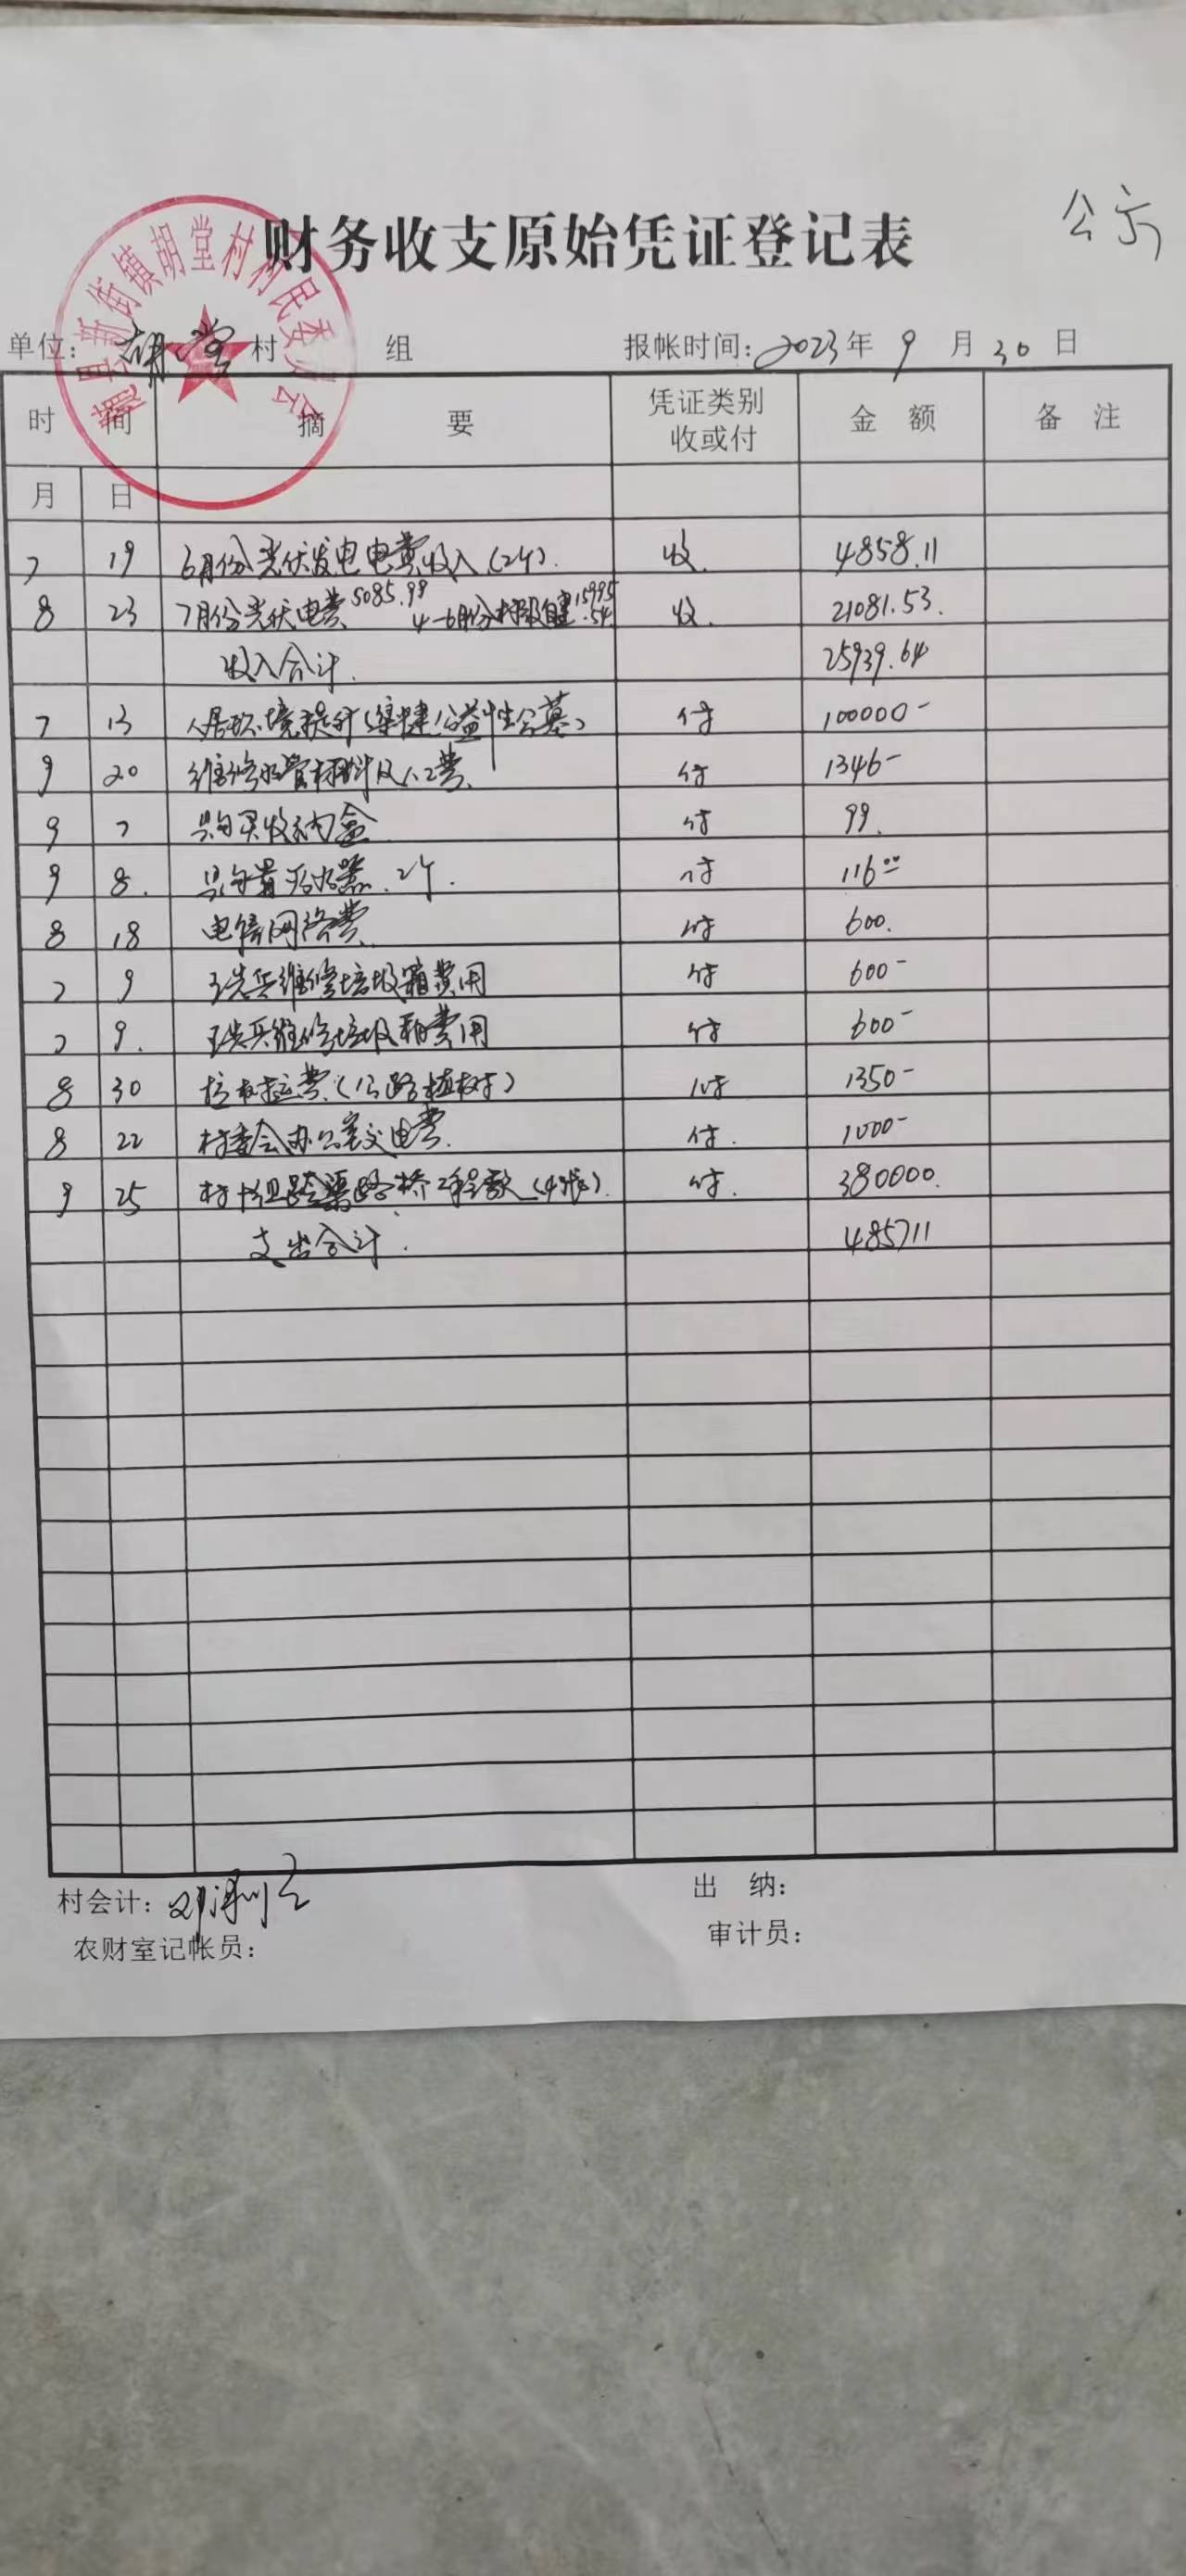 公示
财务收支原始凭证登记表
新街镇胡堂村村民委员会
单位: 胡堂 村 组 报帐时间: 2023 年 9 月 30 日
时 间 摘 要 凭证类别 收或付 金 额 备 注
月 日
7 19 6月份光伏发电电费收入(2个). 收. 4858.11
8 23 7月份光伏电费 5085.99 4-6月份村级自建 15995.54 收. 21081.53.
收入合计. 25939.64
7 13 人居环境提升(渠埂公益性公墓) 付 100000-
9 20 维修水管材料及人工费. 付 1346-
9 7 购买收纳盒 付 99.
9 8. 购置 水器. 2个. 付 116.00
8 18 电信网络费. 付 600.
7 9 兵维修垃圾箱费用 付 600-
7 9. 兵维修垃圾箱费用 付 600-
8 30 拉树拉费(公路植树) 付 1350-
8 22 村委会办公室交电费. 付. 1000-
9 25 村 组跨渠路桥工程款(4张). 付. 380000.
支出合计. 485711
村会计: 邓 出 纳:
农财室记帐员: 审计员: